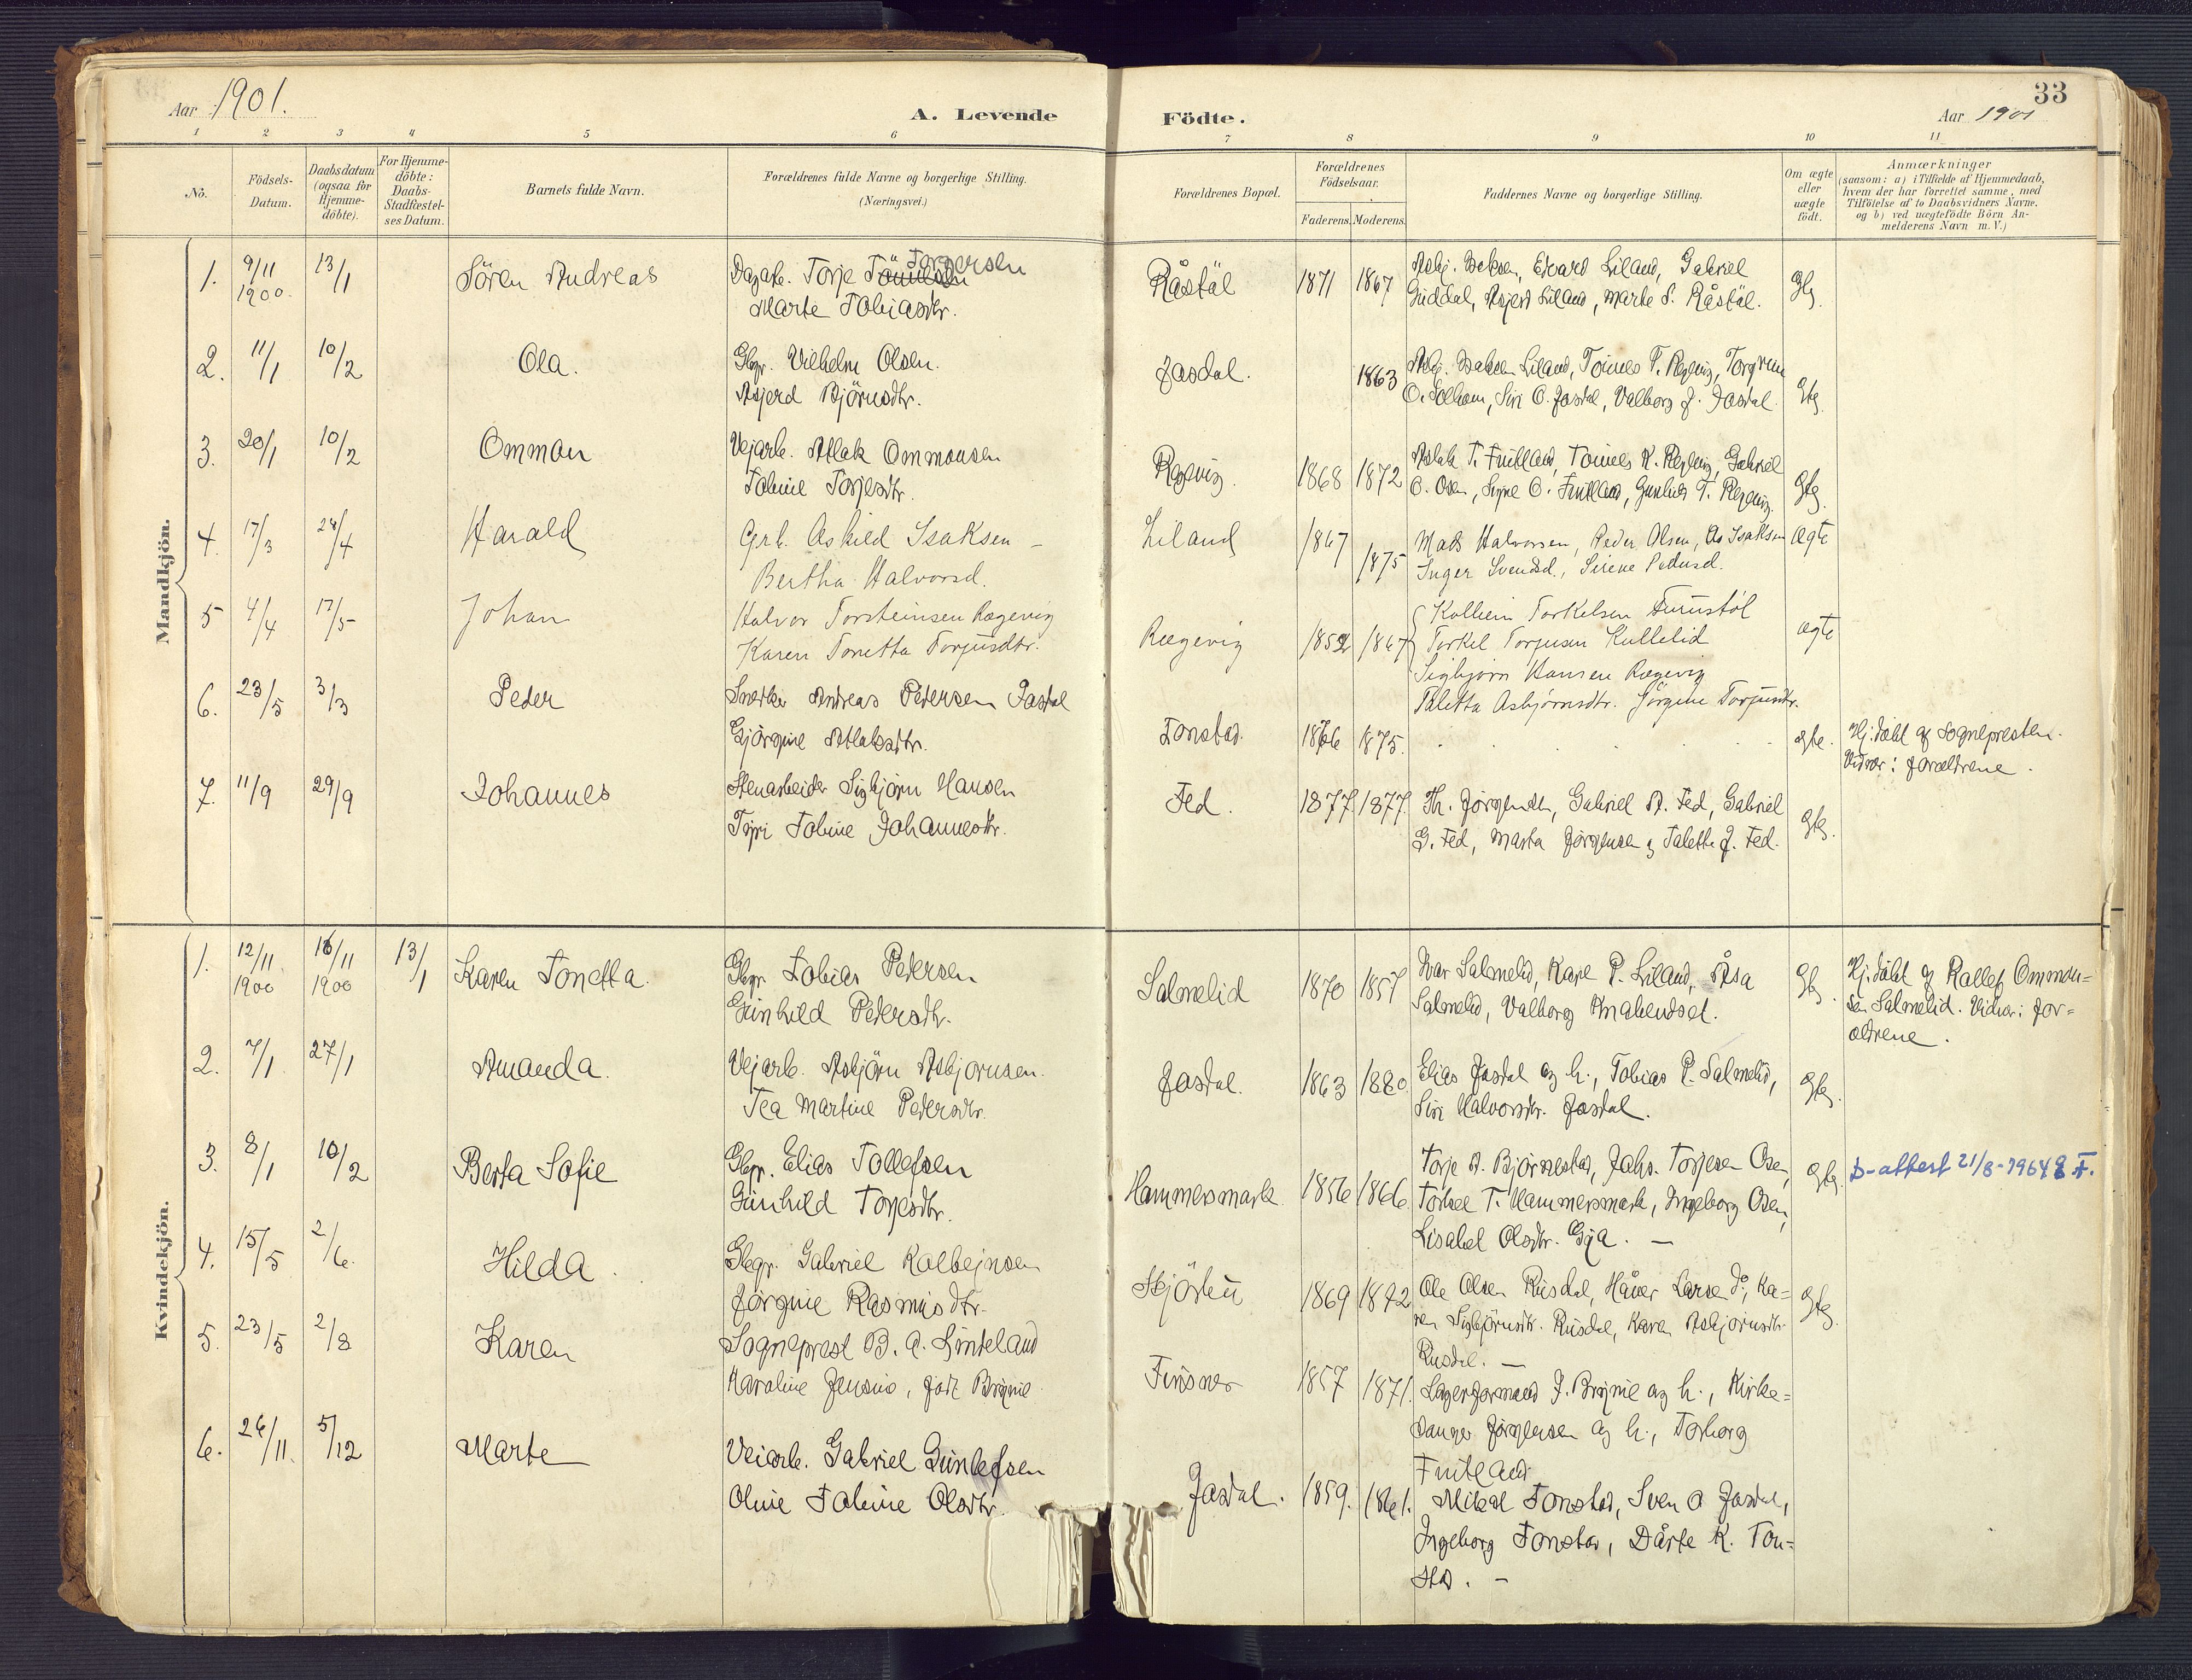 Aar 1901.
A. Levende Födte.
33
Aar 1901
1 2 3 4 5 6 7 8 9 10 11
No.
Födsels-Datum.
Daabsdatum (ogsaa for Hjemme-döbte).
For Hjemme-döbte: Daabs-Stadfæstel-ses Datum.
Barnets fulde Navn.
Forældrenes fulde Navne og borgerlige Stilling.
(Næringsvei.)
Forældrenes Bopæl.
Forældrenes Födselsaar.
Faderens. Moderens.
Faddernes Navne og borgerlige Stilling.
Om ægte eller uægte födt.
Anmærkninger
(saasom: a) i Tilfælde af Hjemmedaab,
hvem der har forrettet samme, med
Tilföielse af to Daabsvidners Navne.
og b) ved uægtefödte Börn An-
melderens Navn m. V.)
Mandkjön.
1. 9/11 1900. 13/1 Sören Andreas
Dagarb. Torje Torgersen
Marte Tobiasdtr.
Råstöl 1871 1867
Edvard Liland, Gabriel
Guddal, Asjerd Liland, Marte S. Råstöl.
2. 11/1 10/2 Ola.
Gbr. Vilhelm Olsen.
Asjerd Björnsdtr.
Josdal. 1863
Liland, Tönnes T. Regevig,
O. Solhom, Siri O. Josdal, Valborg J. Josdal.
3. 20/1 10/2 Ommon
Vejarb. Atlak Ommonsen
Tobine Torjesdtr.
Regevig. 1868 1872
Aslak T. Fintland, Tönnes K. Regevig, Gabriel
O. Osen, Signe O. Fintland, Gunhild T. Regevig.
4. 17/3 28/4 Harald
Grb. Askild Isaksen –
Bertha Halvorsd.
Liland 1867 1875
Mads Halvorsen, Peder Olsen, As Isaksen
Inger Svendsd., Sirene Pedersd.
Ægte
5 4/4 17/5 Johan
Halvor Torsteinsen Rægevig
Karen Tonetta Torjusdtr.
Rægevig 1852 1867
Kolbein Torkelsen Furustöl
Torkel Torjusen Kullelid
Sigbjørn Hansen Rægevig
Taletta Asbjørnsdtr. Jörgine Torjusdtr.
ægte
6. 23/5 3/3 Peder
Snekker Andreas Petersen Josdal
Gjörgine Atlaksdtr.
Tonstad. 1866 1875.
Hj. döbt af Sognepresten.
Vidner: forældrene.
7. 11/9 29/9 Johannes
Stenarbeider Sigbjörn Hansen
Tyri Tobine Johannesdtr.
Fed. 1877. 1877.
Th. Jörgensen, Gabriel A. Fed, Gabriel
G. Fed, Marta Jörgensen og Talette J. Fed.
Kvindekjön.
1. 12/11 1900 16/11 1900 13/1 Karen Tonetta.
Gbr. Tobias Petersen
Gunhild Petersdtr.
Salmelid 1870 1857
Ivar Salmelid, Kare P. Liland, Åsa
Salmelid, Valborg
Hj. döbt af Rallef Ommon=
sen Salmelid. Vidner: for=
ældrene.
2. 7/1 27/1 Amanda.
Vejarb. Asbjörn Asbjornsen.
Tea Martine Petersdtr.
Josdal. 1863 1880.
Elias Josdal og h., Tobias P. Salmelid,
Siri Halvorsdtr. Josdal.
3. 8/1 10/2 Berta Sofie
Gbr. Elias Tollefsen
Gunhild Torjesdtr.
Hammersmark 1856 1866.
Torje A. Björnestad, Johs. Torjesen Osen,
Torkel T. Hammersmark, Ingeborg Osen,
Lisabet Olsdtr. Gya. –
D-attest 21/8-1964
4. 15/5 2/6. Hilda.
Gbgr. Gabriel Kolbejnsen
Jörgine Rasmusdtr.
1869 1872
Ole Olsen Rusdal, Håver Larsen do, Ka=
ren Sigbjörnsdtr. Rusdal, Karen Asbjornsdtr.
Rusdal. –
5. 23/5 2/8 Karen
Sogneprest B. A. Linteland
Karoline Jensine, född Brynie
Finsnes 1857 1871.
J. Brynie og h., Kirke=
sanger Jörgensen og h., Torborg
Fintland.
6. 26/11. 5/12 Marte
Veiarb. Gabriel Gunlefsen
Oline Tobine Olsdtr.
Josdal. 1859. 1861.
Mikal Tonstad, Sven O Josdal,
Ingeborg Tonstad, Dårte K. Ton=
stad. –